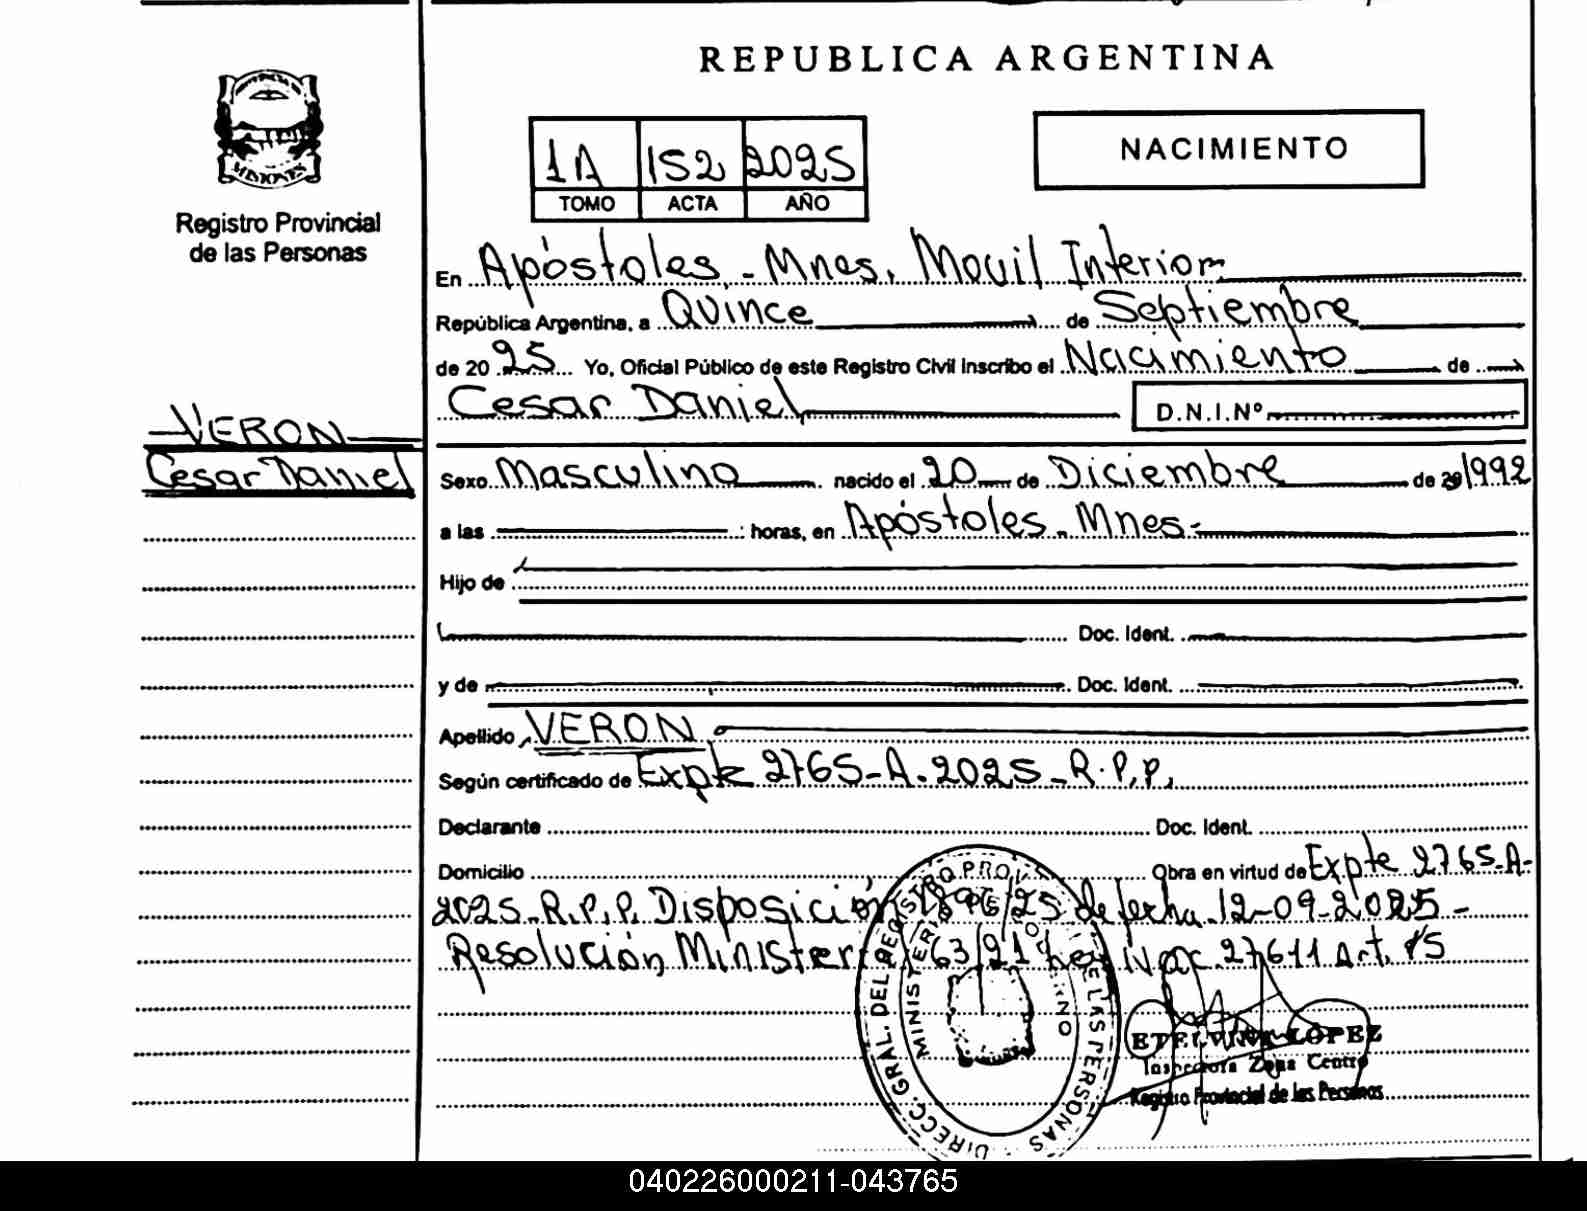 REPUBLICA ARGENTINA
MISIONES
Registro Provincial
de las Personas
1A 152 2025
TOMO ACTA AÑO
NACIMIENTO
En Apóstoles - Mnes. Movil Interior
República Argentina, a Quince de Septiembre
de 2025 Yo, Oficial Público de este Registro Civil inscribo el Nacimiento de
Cesar Daniel D.N.I.Nº
VERON
Cesar Daniel
Sexo Masculino nacido el 20 de Diciembre de 1992
a las : horas, en Apóstoles - Mnes-
Hijo de
Doc. Ident.
y de Doc. Ident.
Apellido VERON
Según certificado de Expte 2765-A-2025-R.P.P.
Declarante Doc. Ident.
Domicilio Obra en virtud de Expte 2765-A-
2025-R.P.P. Disposición 1896/25 de fecha 12-09-2025-
Resolución 63/21 Ley Nac. 27611 Art. 15
DIRECC. GRAL. DEL REGISTRO PROV. DE LAS PERSONAS
MINISTERIO DE GOBIERNO
ETELVINA LOPEZ
Inspectora Zona Centro
Registro Provincial de las Personas
040226000211-043765